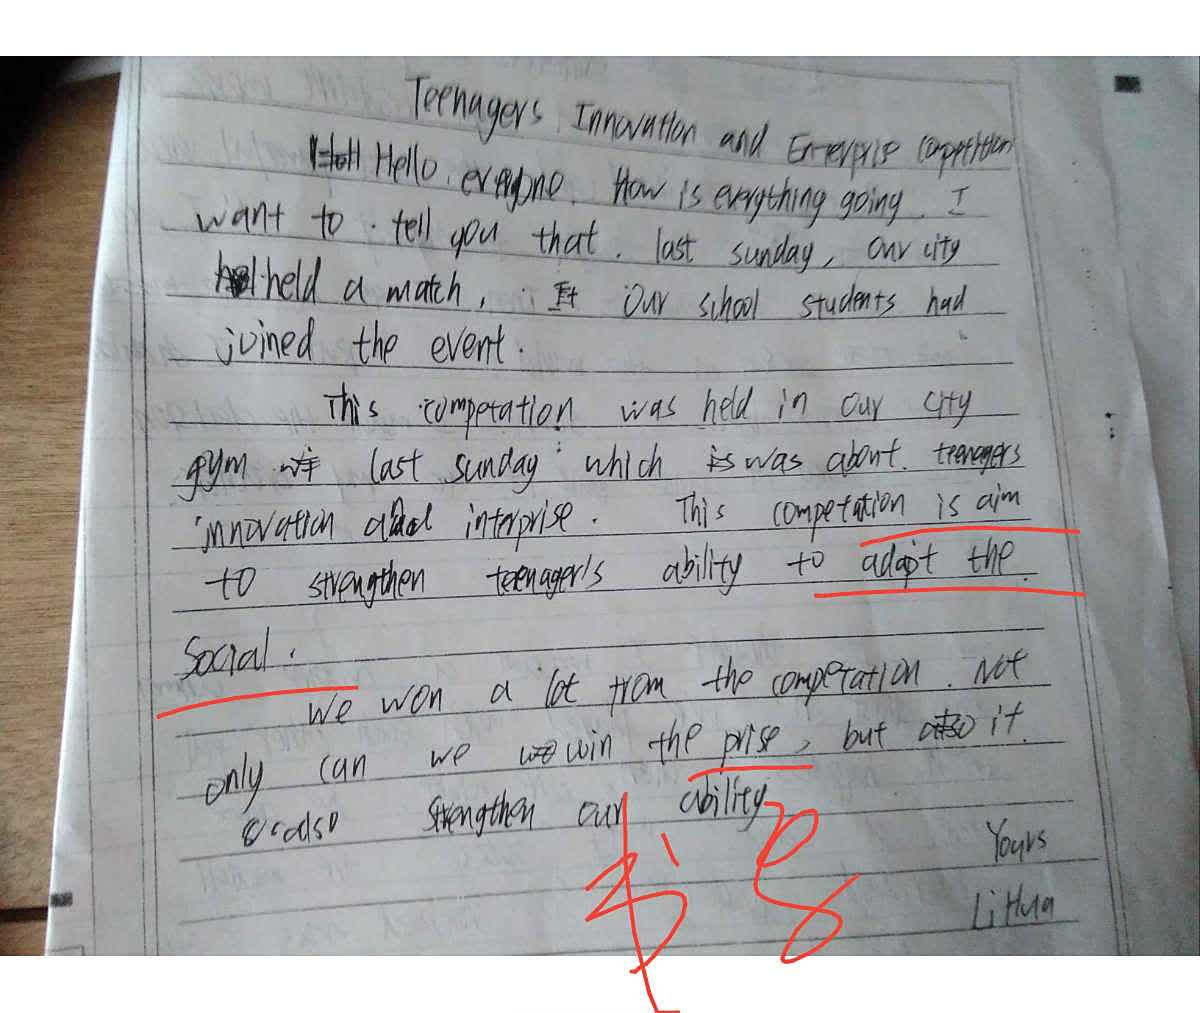 Teenagers Innovation and Enterprise Competition
Hello everyone. How is everything going. I
want to tell you that. last sunday, our city
held a match. Our school students had
joined the event.
This competation was held in our city
gym last sunday which was about teenagers
innovation and interprise. This competation is aim
to strengthen teenager's ability to adapt the
Social.
We won a lot from the competation. Not
only can we win the prise, but it
also strengthen our ability
Yours
LiHua